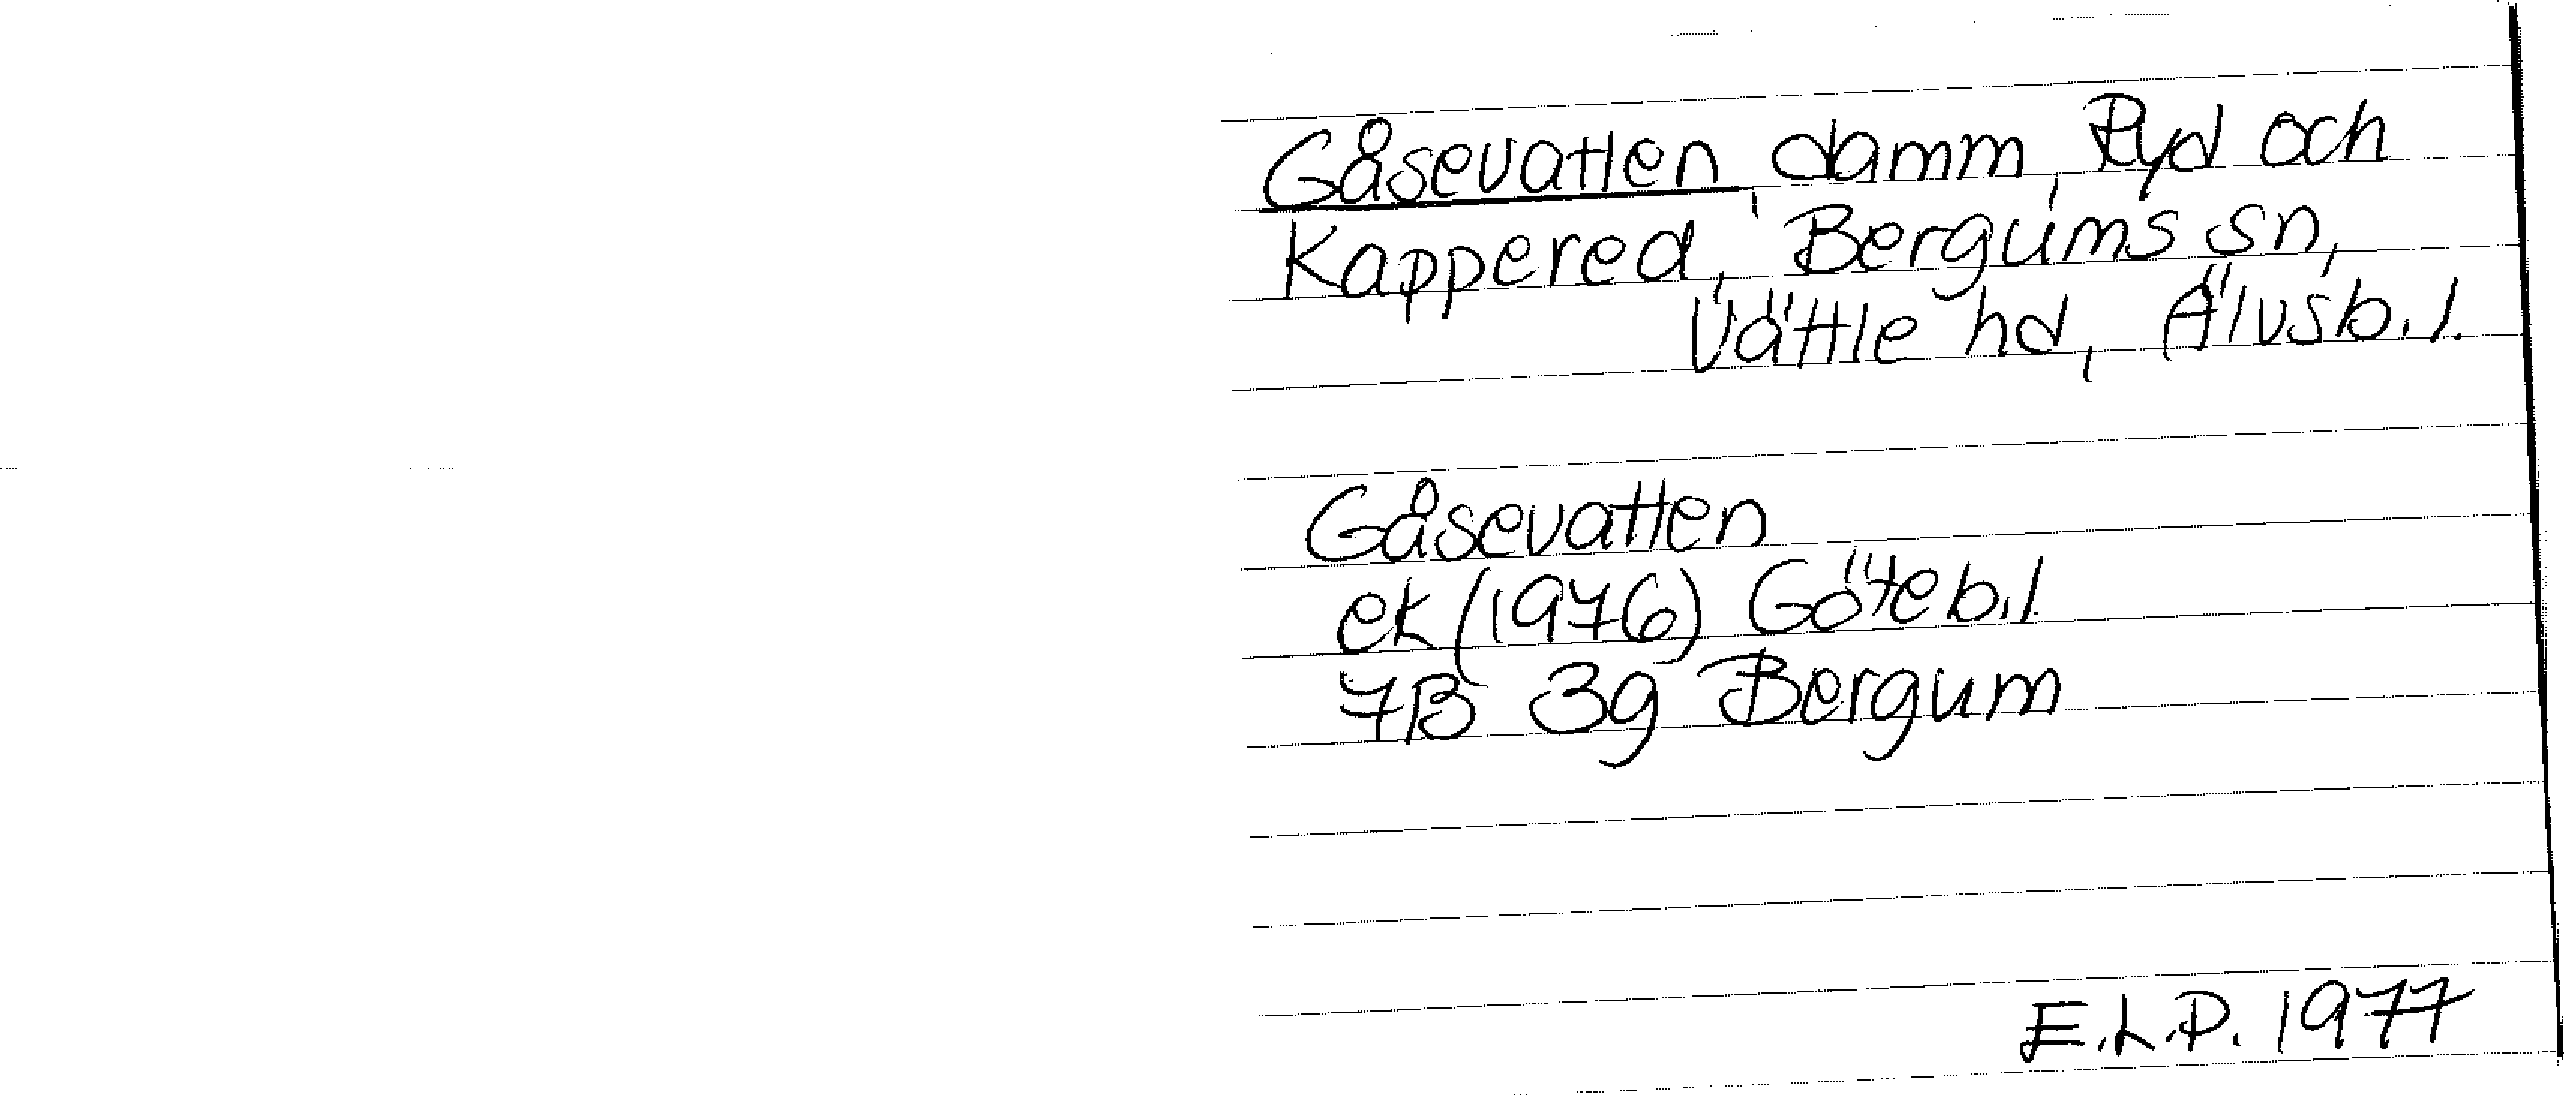 Gåsevatten, damm, Ryd och
Kappered, Bergums sn,
Vättle hd, Älvsb.l.
Gåsevatten
ek (1976) Göteb.l
7B 3g Bergum
E.L.P. 1977